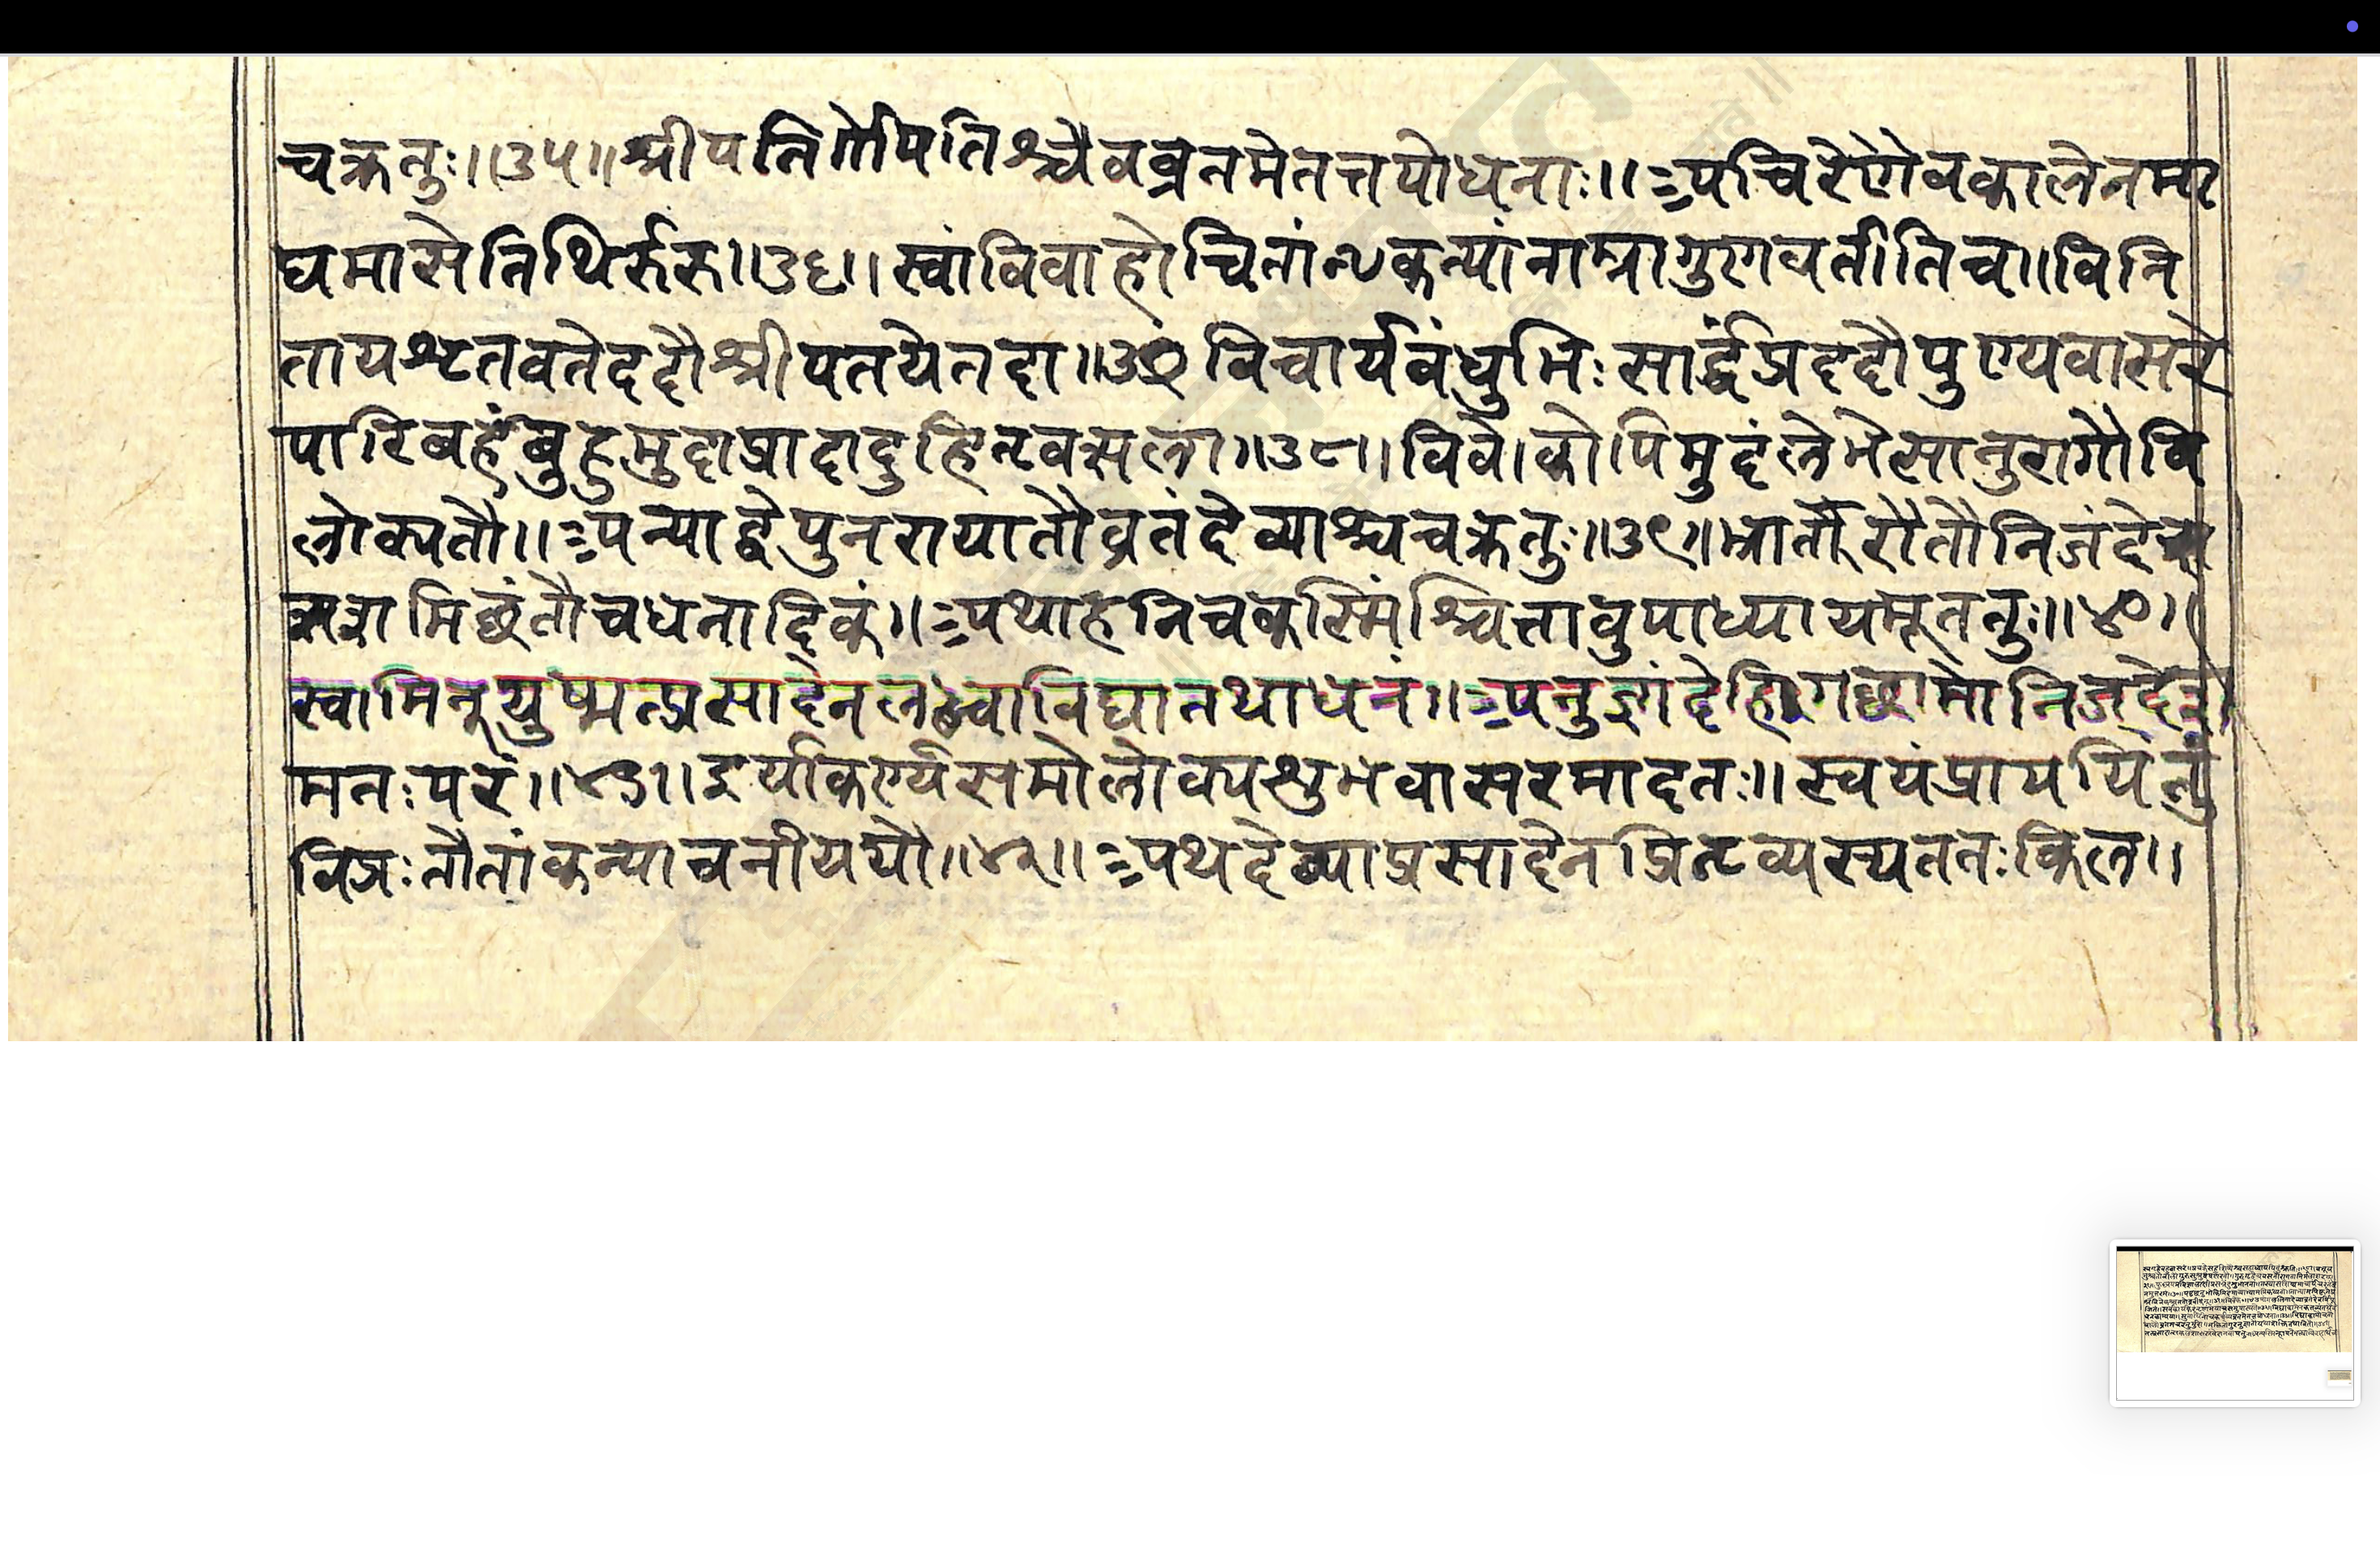 चक्रतुः॥३५॥श्रीपतिर्गोपतिश्चैवव्रतमेतत्तपोधनाः॥अचिरेणैवकालेनमा
घमासेतिथिर्रुरु॥३६॥स्वांविवाहोचितांन्थकन्यांनाम्नागुणवतीतिच॥विनि
तायश्रुतवतेददौश्रीपतयेतदा॥३७विचार्यबंधुभिःसार्द्धंप्रददौपुण्यवासरे
पारिबर्हंबुहुमुदाप्रादाद्दुहितृवत्सला॥३८॥विवेाकोपिमुदंलेभेत्सानुरागौवि
लोक्यतौ॥अन्याद्वेपुनरायातौव्रतंदेव्याश्चचक्रतुः॥३९॥भ्रातौरौतौनिजंदेश
मिछंतौचधनादिकं॥अथाहनिचकस्मिंश्चित्तावुपाध्यायमूततुः॥४०॥
स्वामिन्युष्मत्प्रसादेनलब्ध्वाविद्यातथाधनं॥अनुज्ञांदेहिगछामोनिजदेश
मतःपरं॥४१॥इर्याकर्ण्यसमोलोक्यशुभवासरमादतः॥स्वयंप्राययितुं
विप्रःतौतांकन्याचनीयद्यौ॥४२॥अथदेव्याप्रसादेनप्रितृव्यस्यततःकिल॥